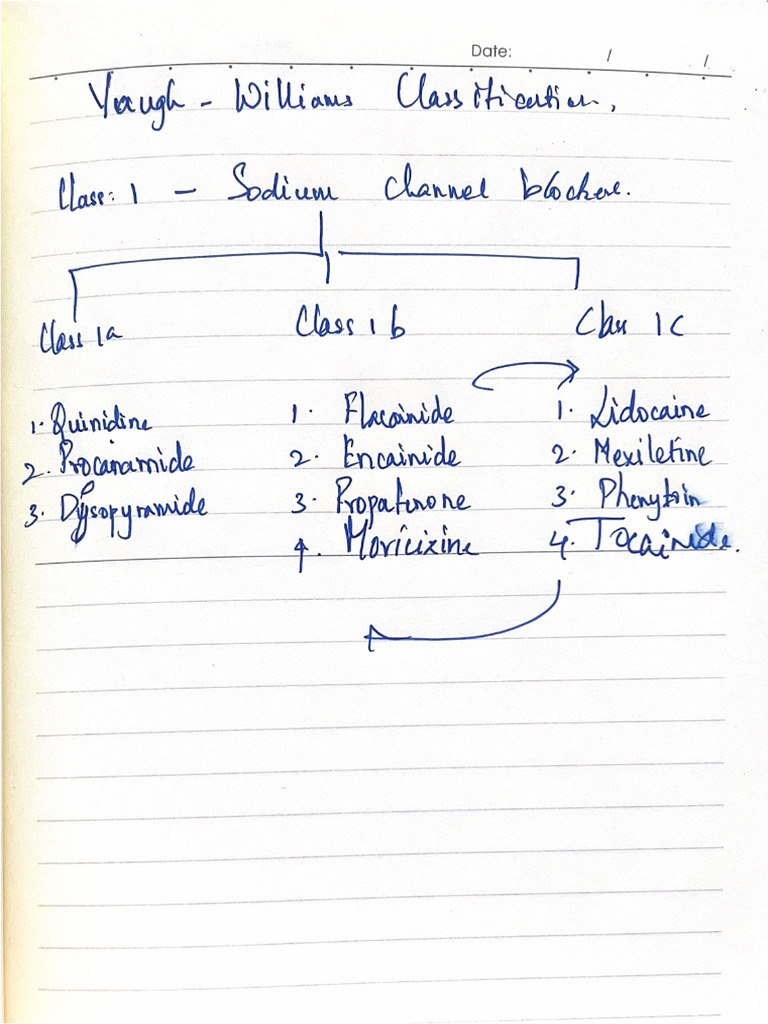 Date: / /
Vaugh - Williams Classification.
Class: 1 - Sodium channel blockers.
Class 1a Class 1 b Class 1 c
1. Quinidine 1. Flacainide 1. Lidocaine
2. Procanamide 2. Encainide 2. Mexiletine
3. Dysopyramide 3. Propafenone 3. Phenytoin
4. Moricizine 4. Tocainide.